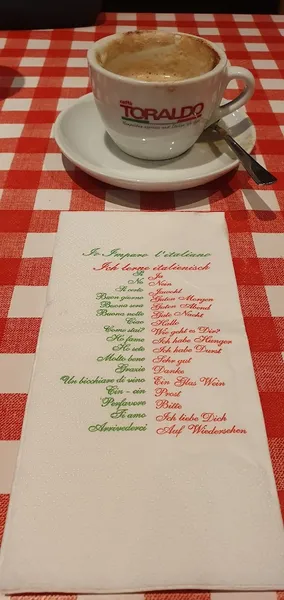 caffè
TORALDO
Io Imparo l'italiano
Ich lerne italienisch
Si Ja
No Nein
Si certo Jawohl
Buon giorno Guten Morgen
Buona sera Guten Abend
Buona notte Gute Nacht
Ciao Hallo
Come stai? Wie geht es Dir?
Ho fame Ich habe Hunger
Ho sete Ich habe Durst
Molto bene Sehr gut
Grazie Danke
Un bicchiare di vino Ein Glas Wein
Cin - cin Prost
Perfavore Bitte
Ti amo Ich liebe Dich
Arrivederci Auf Wiedersehen